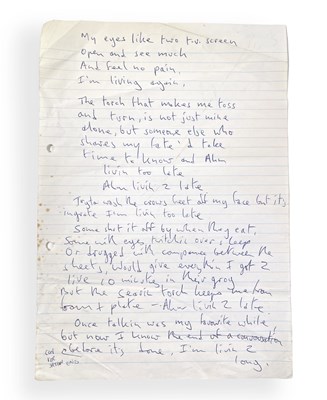 My eyes like two t.v. screen
Open and see much
And feel no pain,
I'm living again,
The torch that makes me toss
and turn, is not just mine
alone, but someone else who
shares my fate'd take
time to know and Ahm
livin too late
Ahm livin 2 late
wash the crows feet off my face but its
ingrate I'm livin too late
Some shut it off by when they eat,
Some with eyes twitchin over sleep
Or drugged with company between the
sheets, would give everythin I got 2
live 10 minutes in their groay
But the torch keeps me from
+ plate - Ahm livin 2 late
Once talkin was my favorite while
but now I know the end of a conversation
before its done, I'm livin 2
long.